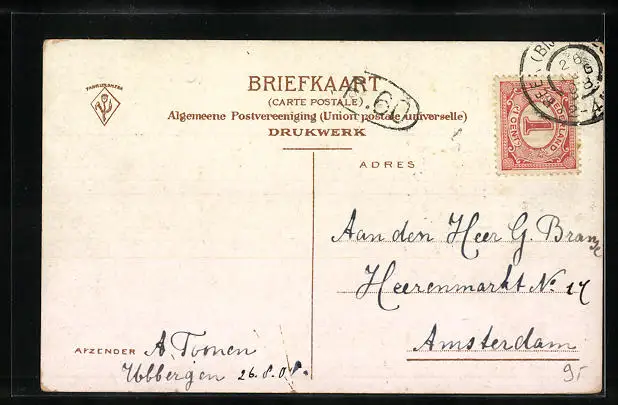 FABRIEKSMERK
BRIEFKAART
(CARTE POSTALE)
Algemeene Postvereeniging (Union postale universelle)
DRUKWERK
60
1
CENT
ADRES
Aan den Heer G. Branse
Heerenmarkt No. 17
Amsterdam
AFZENDER A. Toonen
Ubbergen 26.8.08.
9,-